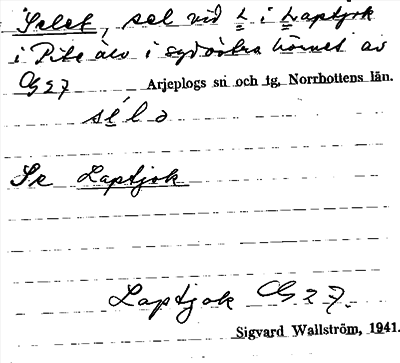 Selet, sel vid L i Laptjok
i Pite älv i sydöstra hörnet av
CG 27 Arjeplogs sn och tg. Norrbottens län.
sélə
Se Laptjok
Laptjok CG 27.
Sigvard Wallström, 1941.